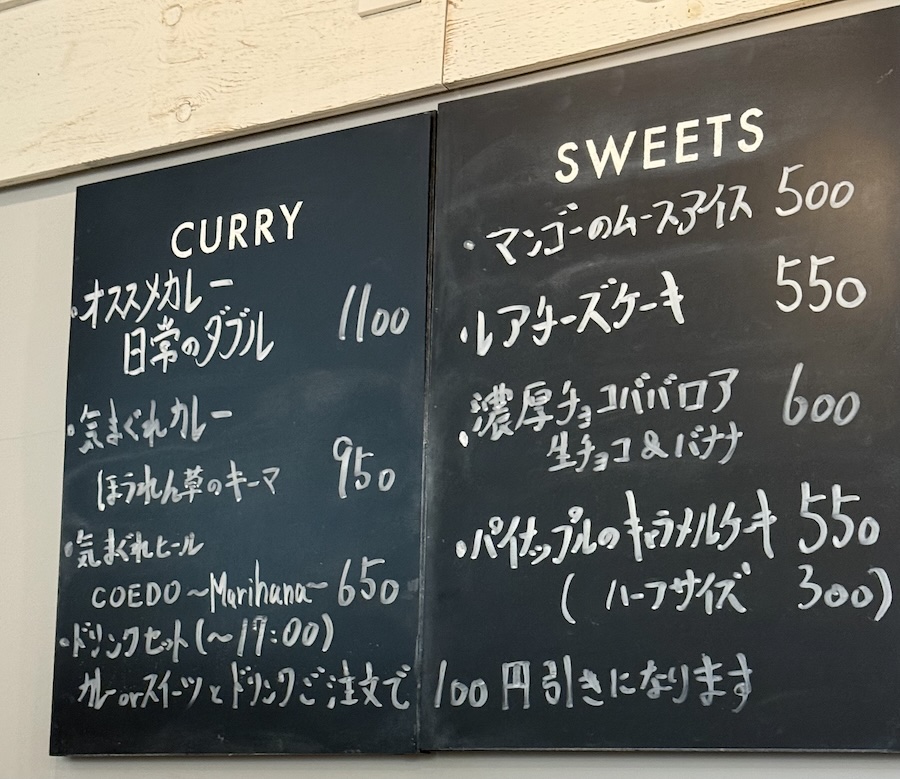 CURRY
・オススメカレー
日常のダブル 1100
・気まぐれカレー
ほうれん草のキーマ 950
・気まぐれビール
COEDO ~Marihana~ 650
・ドリンクセット(~17:00)
カレーorスイーツとドリンクご注文で 100円引きになります
SWEETS
・マンゴーのムースアイス 500
・レアチーズケーキ 550
・濃厚チョコババロア 600
生チョコ&バナナ
・パイナップルのキャラメルケーキ 550
(ハーフサイズ 300)